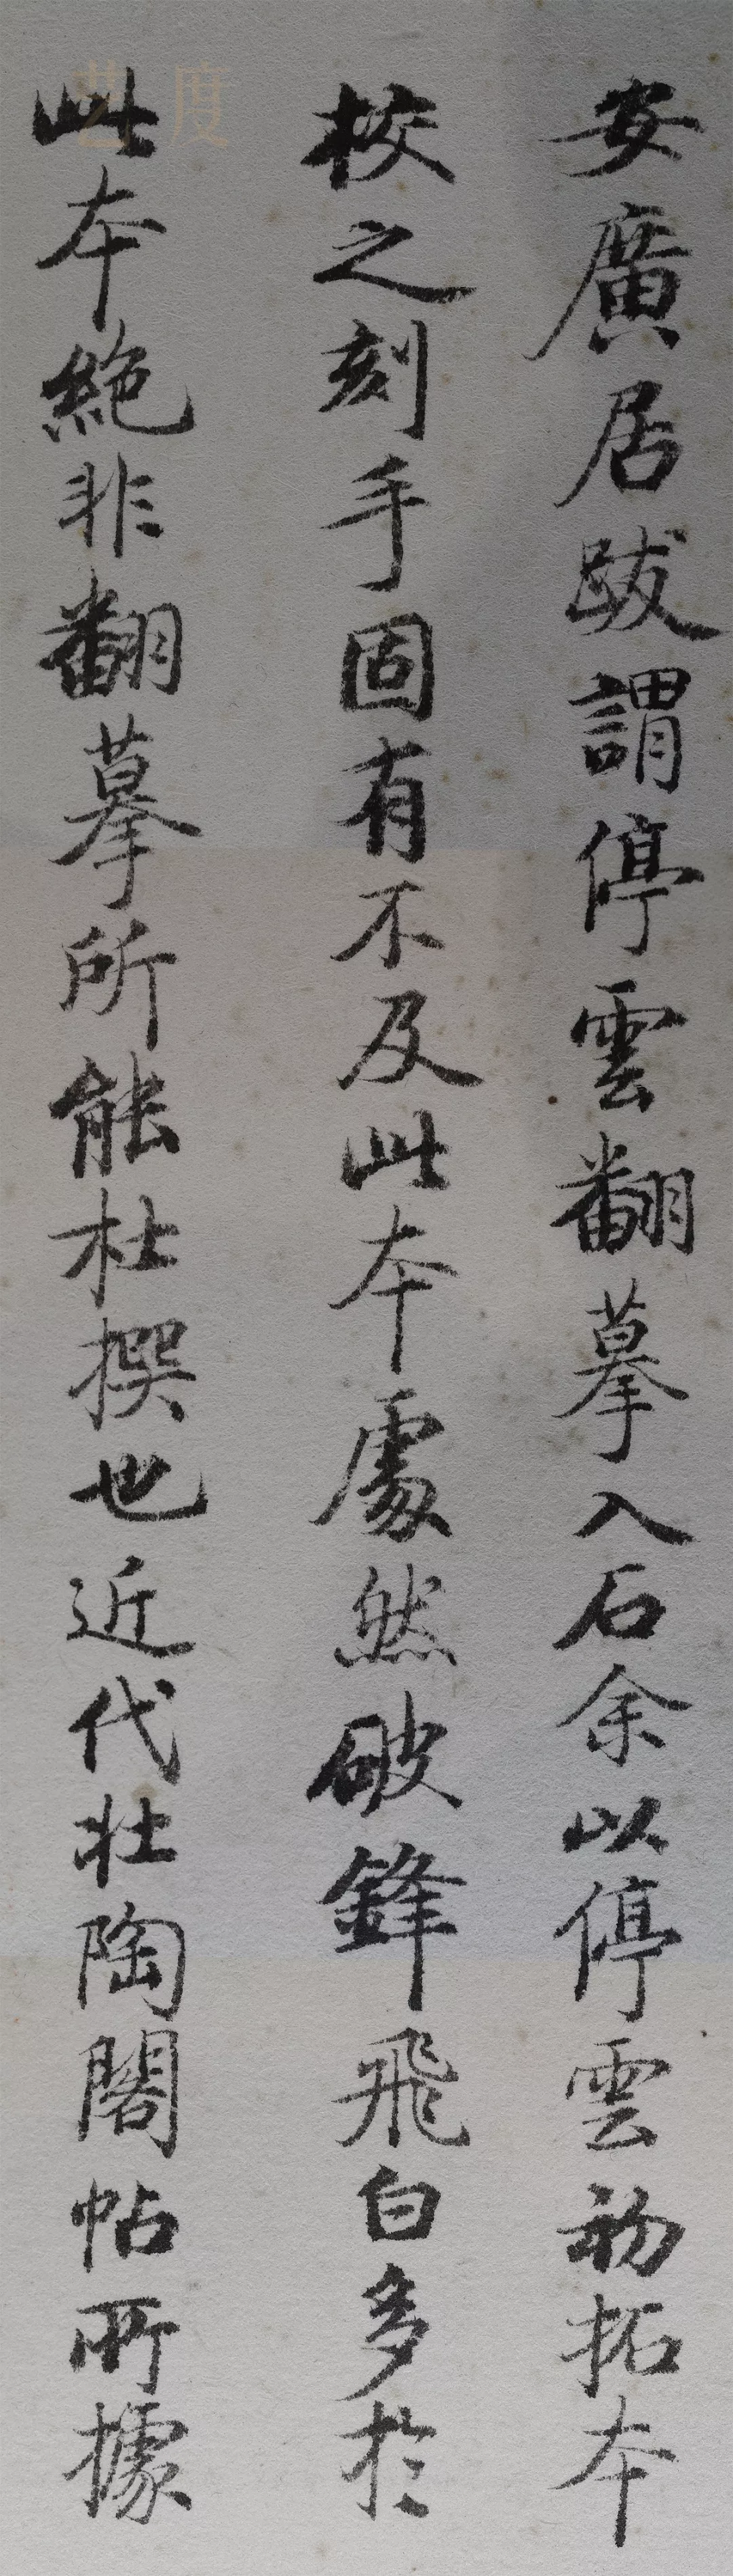 安廣居跋謂停雲翻摹入石余以停雲初拓本
校之刻手固有不及此本處然破鋒飛白多於
此本絕非翻摹所能杜撰也近代壯陶閣帖所據
藝度